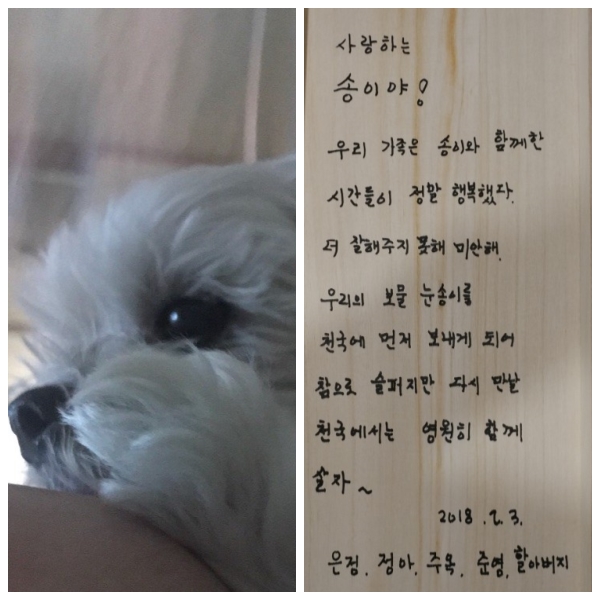 사랑하는
송이야!
우리 가족은 송이와 함께한
시간들이 정말 행복했다.
더 잘해주지 못해 미안해.
우리의 보물 눈송이를
천국에 먼저 보내게 되어
참으로 슬퍼지만 다시 만날
천국에서는 영원히 함께
살자~
2018.2.3.
은정, 정아, 주옥, 준영, 할아버지